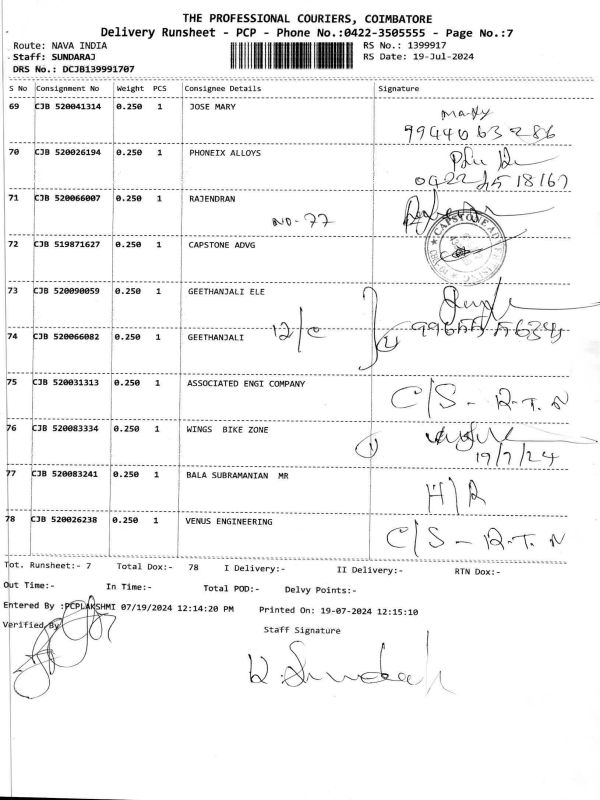 THE PROFESSIONAL COURIERS, COIMBATORE
Delivery Runsheet - PCP - Phone No.:0422-3505555 - Page No.:7
Route: NAVA INDIA RS No.: 1399917
Staff: SUNDARAJ RS Date: 19-Jul-2024
DRS No.: DCJB139991707
S No Consignment No Weight PCS Consignee Details Signature
69 CJB 520041314 0.250 1 JOSE MARY
Mary
9944063286
70 CJB 520026194 0.250 1 PHONEIX ALLOYS
71 CJB 520066007 0.250 1 RAJENDRAN
NO-77
72 CJB 519871627 0.250 1 CAPSTONE ADVG
73 CJB 520090059 0.250 1 GEETHANJALI ELE
74 CJB 520066082 0.250 1 GEETHANJALI 12/C
75 CJB 520031313 0.250 1 ASSOCIATED ENGI COMPANY
C/S - R.T.N
76 CJB 520083334 0.250 1 WINGS BIKE ZONE
19/7/24
77 CJB 520083241 0.250 1 BALA SUBRAMANIAN MR
H/R
78 CJB 520026238 0.250 1 VENUS ENGINEERING
C/S - R.T.N
Tot. Runsheet:- 7 Total Dox:- 78 I Delivery:- II Delivery:- RTN Dox:-
Out Time:- In Time:- Total POD:- Delvy Points:-
Entered By :PCPLAKSHMI 07/19/2024 12:14:20 PM Printed On: 19-07-2024 12:15:10
Verified By Staff Signature